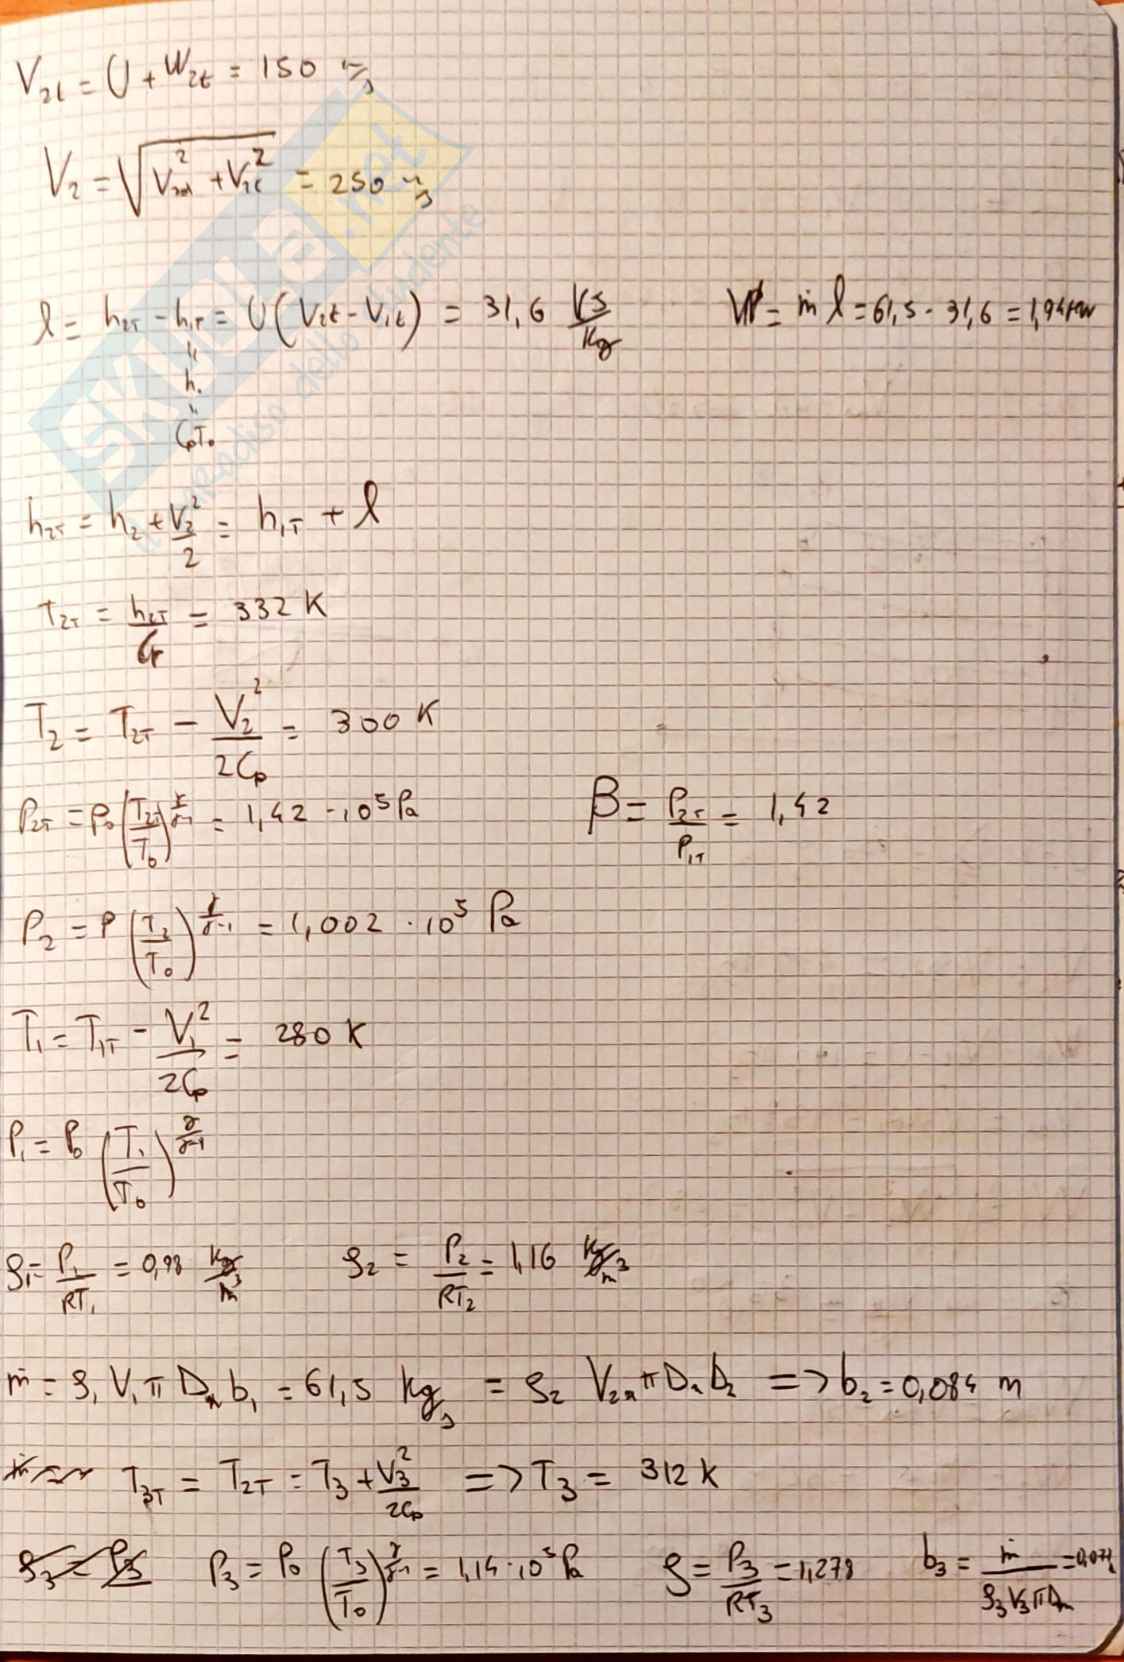 V2t = U + W2t = 150 m/s
V2 = √(V2a² + V2t²) = 250 m/s
l = h2T - h1T = U(V2t - V1t) = 31,6 KJ/Kg W = ṁ l = 61,5 · 31,6 = 1,94 MW
"
h0
"
CpT0
h2T = h2 + V2²/2 = h1T + l
T2T = h2T/Cp = 332 K
T2 = T2T - V2²/2Cp = 300 K
P2T = P0 (T2T/T0)^(γ/(γ-1)) = 1,42 · 10⁵ Pa β = P2T/P1T = 1,42
P2 = P (T2/T0)^(γ/(γ-1)) = 1,002 · 10⁵ Pa
T1 = T1T - V1²/2Cp = 280 K
P1 = P0 (T1/T0)^(γ/(γ-1))
ρ1 = P1/RT1 = 0,98 Kg/m³ ρ2 = P2/RT2 = 1,16 Kg/m³
ṁ = ρ1 V1 π Dm b1 = 61,5 Kg/s = ρ2 V2a π Dm b2 => b2 = 0,084 m
T3T = T2T = T3 + V3²/2Cp => T3 = 312 K
ρ3 = P3 P3 = P0 (T3/T0)^(γ/(γ-1)) = 1,14 · 10⁵ Pa ρ = P3/RT3 = 1,278 b3 = ṁ/(ρ3 V3 π Dm)
SKUOLA.net
il paradiso dello studente